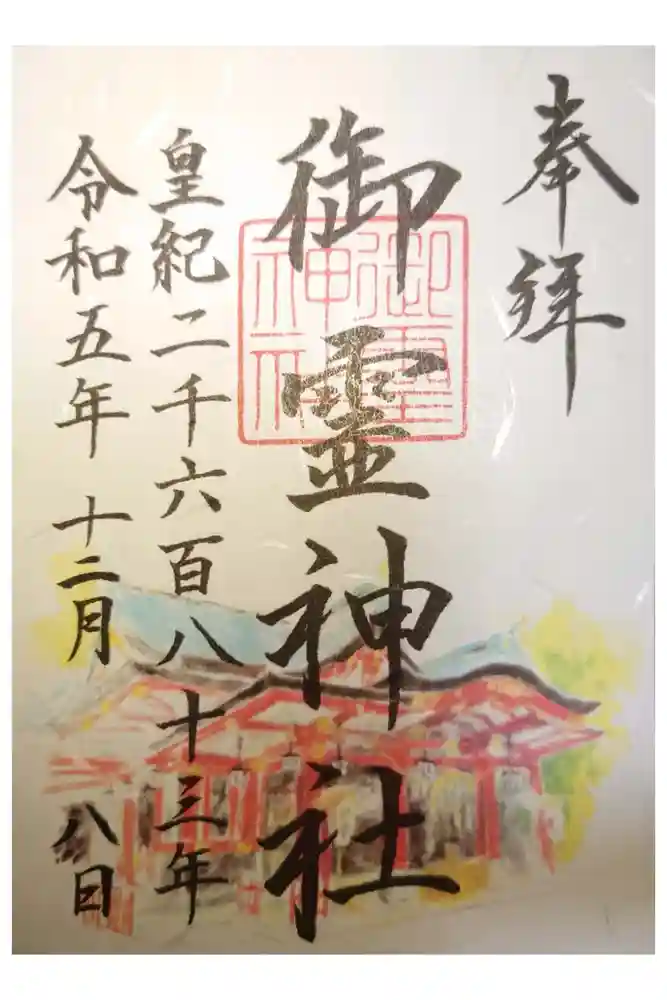 奉拝
御霊神社
御霊神社
皇紀二千六百八十三年
令和五年十二月八日